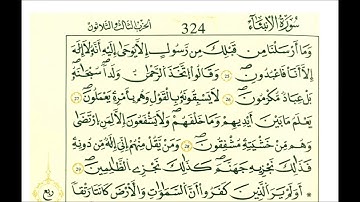 سُورَةُ الأَنبِيَاء 324 الحِزْبُ الثَّالِثُ وَالثَّلاثُونَ
وَمَا أَرْسَلْنَا مِن قَبْلِكَ مِن رَّسُولٍ إِلَّا يُوحَىٰ إِلَيْهِ أَنَّهُ لَا إِلَٰهَ
إِلَّا أَنَا فَاعْبُدُونِ 25 وَقَالُوا اتَّخَذَ الرَّحْمَٰنُ وَلَدًا سُبْحَٰنَهُ
بَلْ عِبَادٌ مُّكْرَمُونَ 26 لَا يَسْبِقُونَهُ بِالْقَوْلِ وَهُم بِأَمْرِهِ يَعْمَلُونَ 27
يَعْلَمُ مَا بَيْنَ أَيْدِيهِمْ وَمَا خَلْفَهُمْ وَلَا يَشْفَعُونَ إِلَّا لِمَنِ ارْتَضَىٰ
وَهُم مِّنْ خَشْيَتِهِ مُشْفِقُونَ 28 وَمَن يَقُلْ مِنْهُمْ إِنِّي إِلَٰهٌ مِّن دُونِهِ
فَذَٰلِكَ نَجْزِيهِ جَهَنَّمَ كَذَٰلِكَ نَجْزِي الظَّٰلِمِينَ 29
أَوَلَمْ يَرَ الَّذِينَ كَفَرُوا أَنَّ السَّمَٰوَٰتِ وَالْأَرْضَ كَانَتَا رَتْقًا
ربع